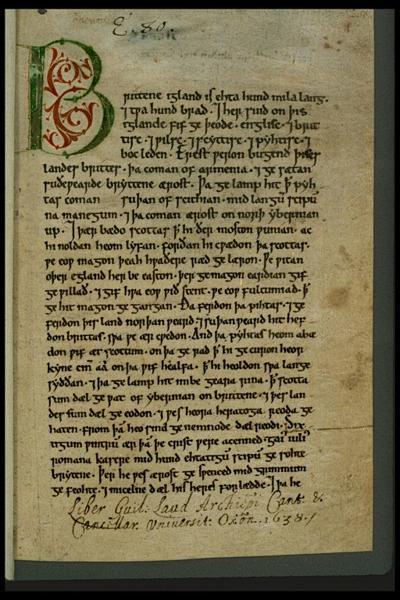 E. 80.
Brittene igland is ehta hund mila lang.
⁊ tƿa hund brad. ⁊ her sind on þis
iglande fif ge þeode. englisc. ⁊ brit
tisc. ⁊ ƿilsc. ⁊ scyttisc. ⁊ pyhtisc. ⁊
boc leden. Erest ƿeron bugend þises
landes brittes. þa coman of armenia. ⁊ ge sætan
suðeƿearde bryttene ærost. Þa ge lamp hit þ̄ pyh
tas coman suþan of scithian. mid langū scipū
na manegum. ⁊ þa coman ærost on norþ ybernian
up. ⁊ þær bædo scottas þ̄ hi ðer moston ƿunian. ac
hi noldan heom lyfan. forðan hi cƿædon þa scottas.
ƿe eoƿ magon þeah hƿaðere ræd ge læron. Ƿe ƿitan
oþer egland her be easton. þer ge magon eardian gif
ge ƿillað. ⁊ gif hƿa eoƿ ƿið stent. ƿe eoƿ fultumiað. þ̄
ge hit magon ge gangan. Ða ferdon þa pihtas. ⁊ ge
ferdon þis land norþan ƿeard. ⁊ suþan ƿeard hit hef
don brittas. sƿa ƿe ær cƿedon. And þa pyhtas heom abæ
don ƿif æt scottum. on þa ge rad þ̄ hi ge curon heor
kyne cinn aa on þa ƿif healfa. þ̄ hi heoldon sƿa lange
syððan. ⁊ þa ge lamp hit imbe geara rina. þ̄ scotta
sum dæl ge ƿat of ybernian on brittene. ⁊ þes lan
des sum dæl ge eodon. ⁊ ƿes heora heratoga reoda ge
haten. from þā heo sind ge nemnode dæl reodi. Six
tigum ƿintrū ær þā þe crist ƿere acenned. gaiˀ iuliˀ
romana kasere mid hund ehtatigū scipū ge sohte
brytene. Þer he ƿes ærost ge sƿenced mid grimmum
ge feohte. ⁊ micelne dæl his heres forlædde. ⁊ þa he
Liber Guil: Laud Archiep̄i Cant. &
Cancillar. Universit: Oxon. 1638.